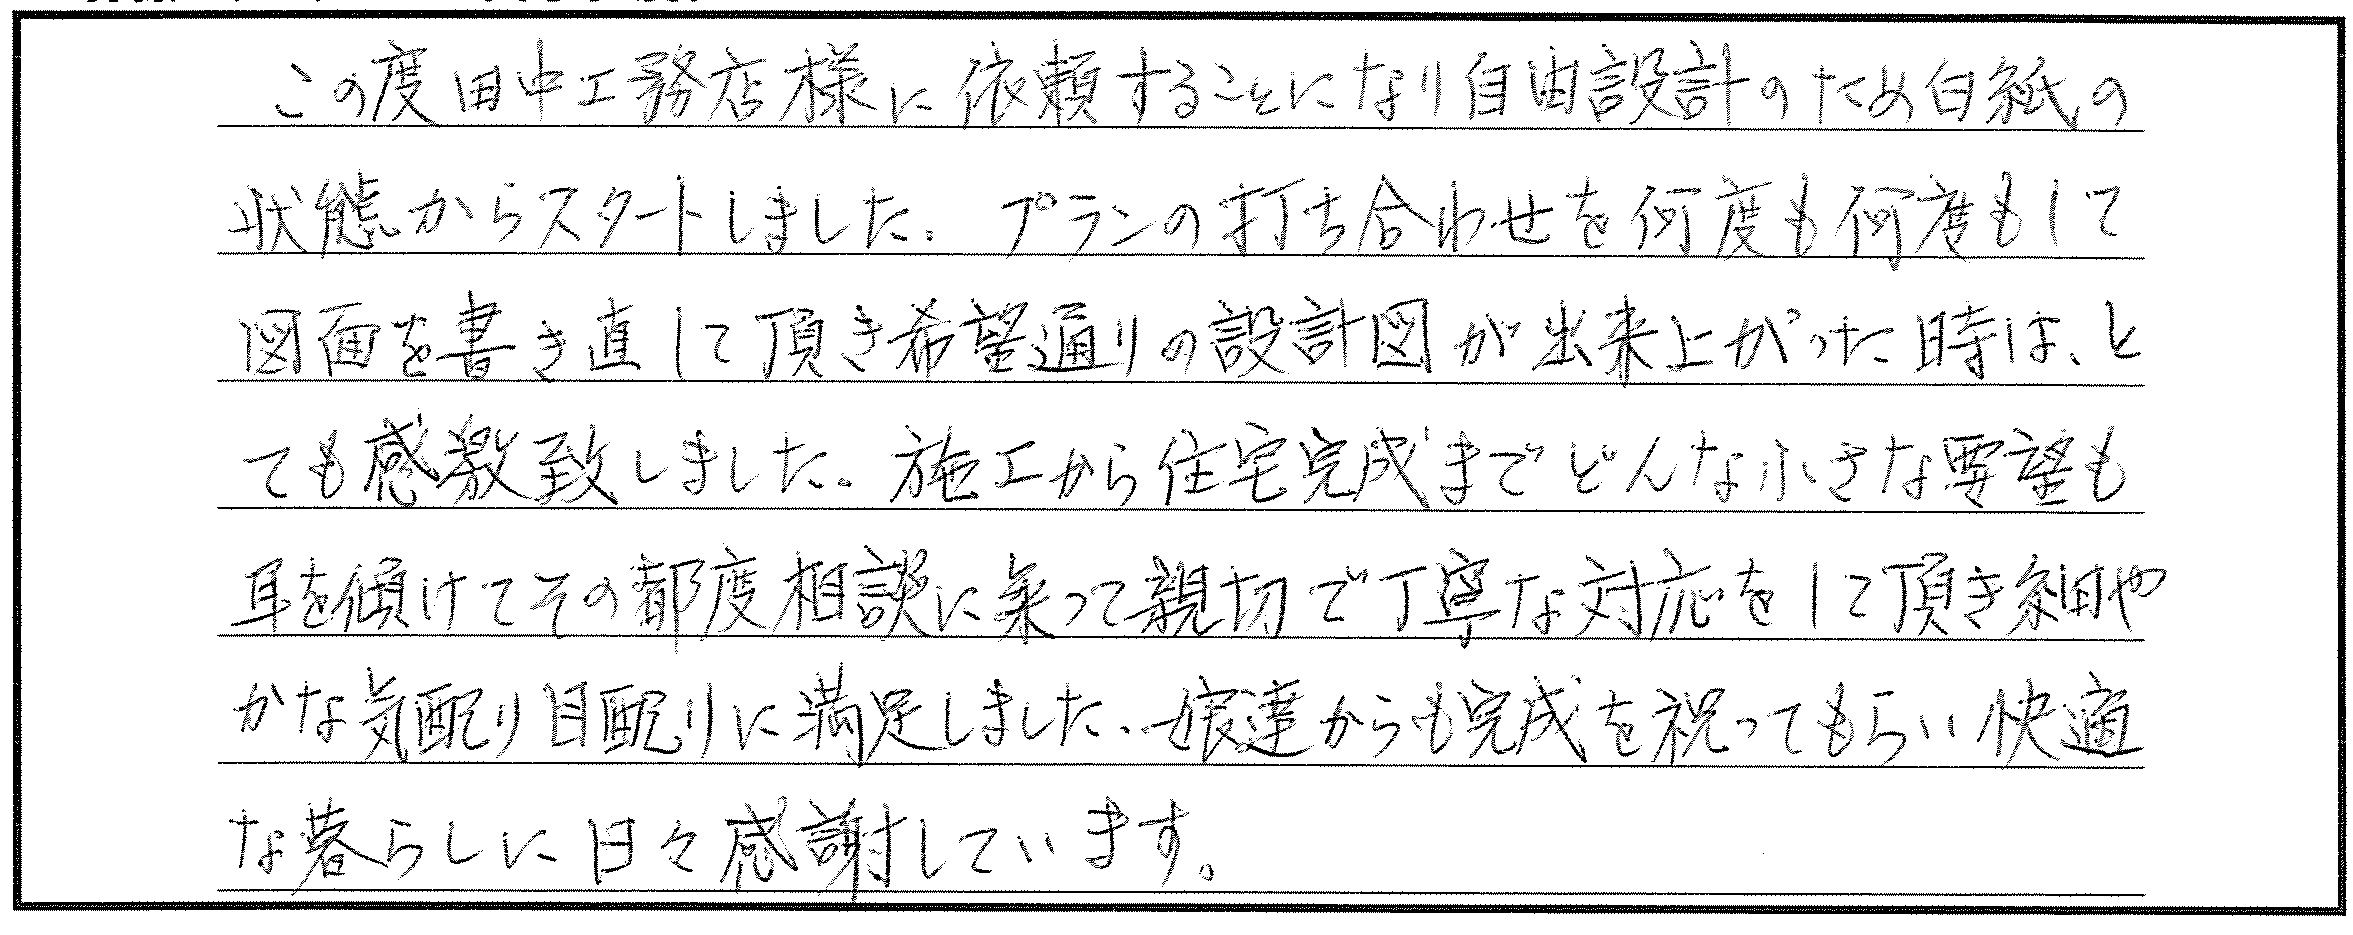 この度田中工務店様に依頼することになり自由設計のため白紙の
状態からスタートしました。プランの打ち合わせを何度も何度もして
図面を書き直して頂き希望通りの設計図が出来上がった時は、と
ても感激致しました。施工から住宅完成までどんな小さな要望も
耳を傾けてその都度相談に乗って親切で丁寧な対応をして頂き細や
かな気配り目配りに満足しました。娘達からも完成を祝ってもらい快適
な暮らしに日々感謝しています。